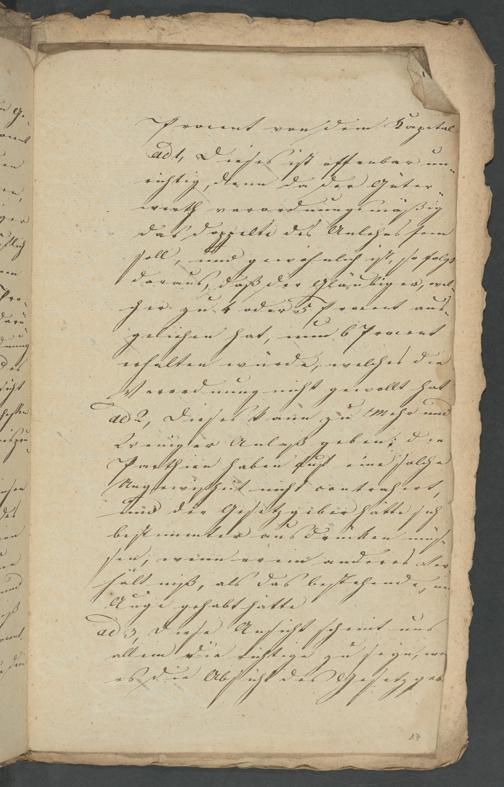 Procent von dem Kapital
ad 1, Dieses ist offenbar un-
richtig, denn da der Güter-
werth verordnungsmäßig
das doppelte des Anlehns sein
soll, und gewöhnlich ist, so folgt
daraus, daß der Gläubiger, wel-
cher zu 4 oder 5 Procent aus-
geliehen hat, nun 6 Procent
erhalten würde, welches die
Verordnung nicht gewollt hat
ad 2, Dieses kann zu Mehr und
Weniger Anlaß geben; die
Parthien haben auf eine solche
Ungewißheit nicht contrahirt,
und der Gesetzgeber hätte sich
bestimmter ausdrücken müs-
sen, wenn er ein anderes Ver-
hältniß, als das bestehende, im
Auge gehabt hätte
ad 3, Diese Ansicht scheint uns
allein die richtige zu seyn, wo
es die Absicht des Gesetzgeb
17